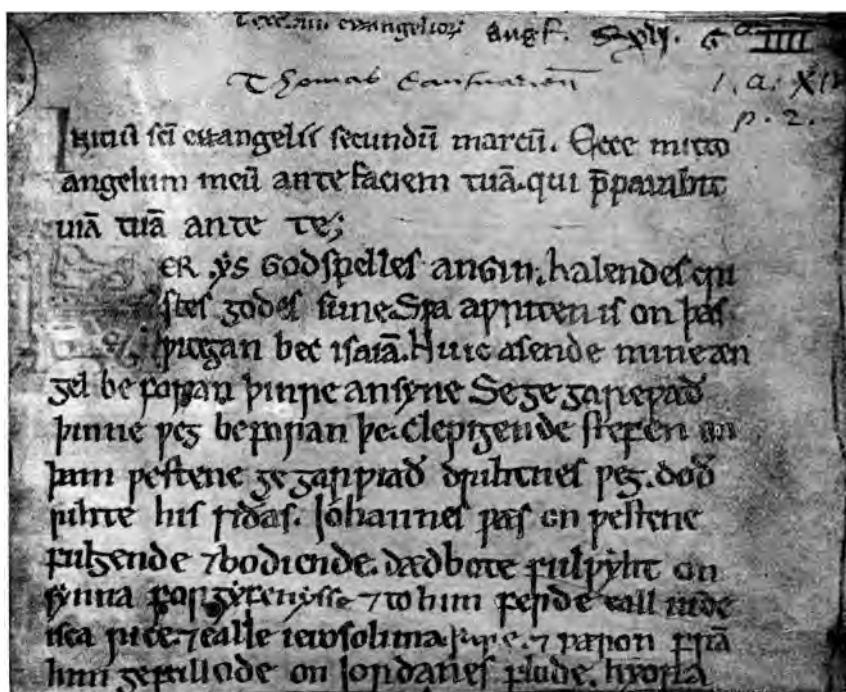 evangelior̄
Thomas Cantuarien̄ 1. a. XIV
p. 2.
Initiū sc̄i euuangelii secundū marcū. Ecce mitto
angelum meū ante faciem tuā. qui p̄parabit
uiā tuā ante te;
ER ys Godspelles angin. halendes cri
stes godes sune. Sƿa aƿriten is on þas
ƿitegan bec isaiā. Nu ic asende mine æn
gel beforan þinre ansyne Se ge gareƿað
þinne ƿeg beforan þe. Clepigende stefen on
þam ƿestene ge garƿiað drihtnes ƿeg. doð
rihte his siðas. Iohannes ƿas on ƿestene
fulgende ⁊ bodiende. dædbote fulƿyht on
synna forgyfenysse ⁊ to him ferde eall iude
isca rice. ⁊ ealle ierosolima ƿare. ⁊ ƿæron frā
him gefullode on iordanes flode. hyora